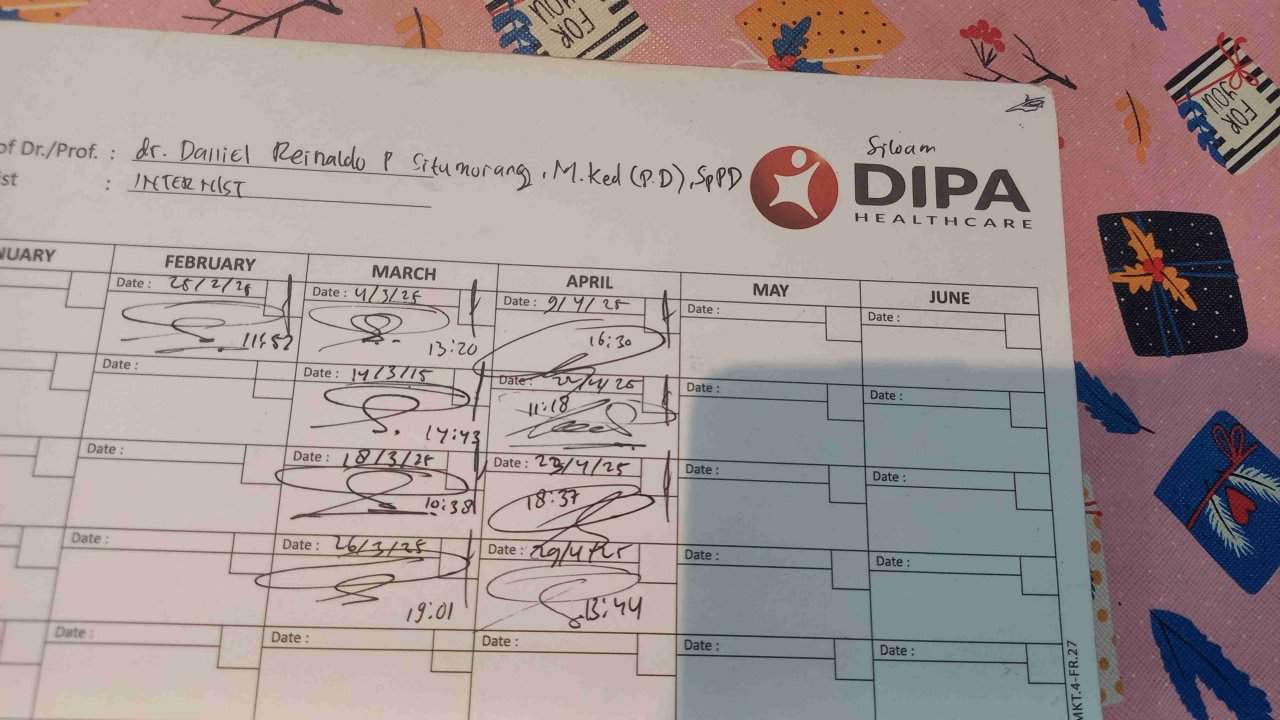 FOR YOU
FOR YOU
of Dr./Prof. : dr. Daniel Reinaldo P Situmorang, M.Ked (P.D), SpPD
ist : INTERNIST
Siloam
DIPA
HEALTHCARE
NUARY FEBRUARY MARCH APRIL MAY JUNE
Date : 4/3/25 Date : 9/4/25 Date : Date :
Date :
13:20 16:30
Date : Date : 14/3/15 Date : Date : Date :
11:18
14:43
Date : Date : 18/3/25 Date : /4/25 Date : Date :
10:38 18:37
Date : Date : 26/3/25 Date : Date : Date :
19:01 13:44
Date : Date : Date : Date : Date :
MKT.4-FR.27